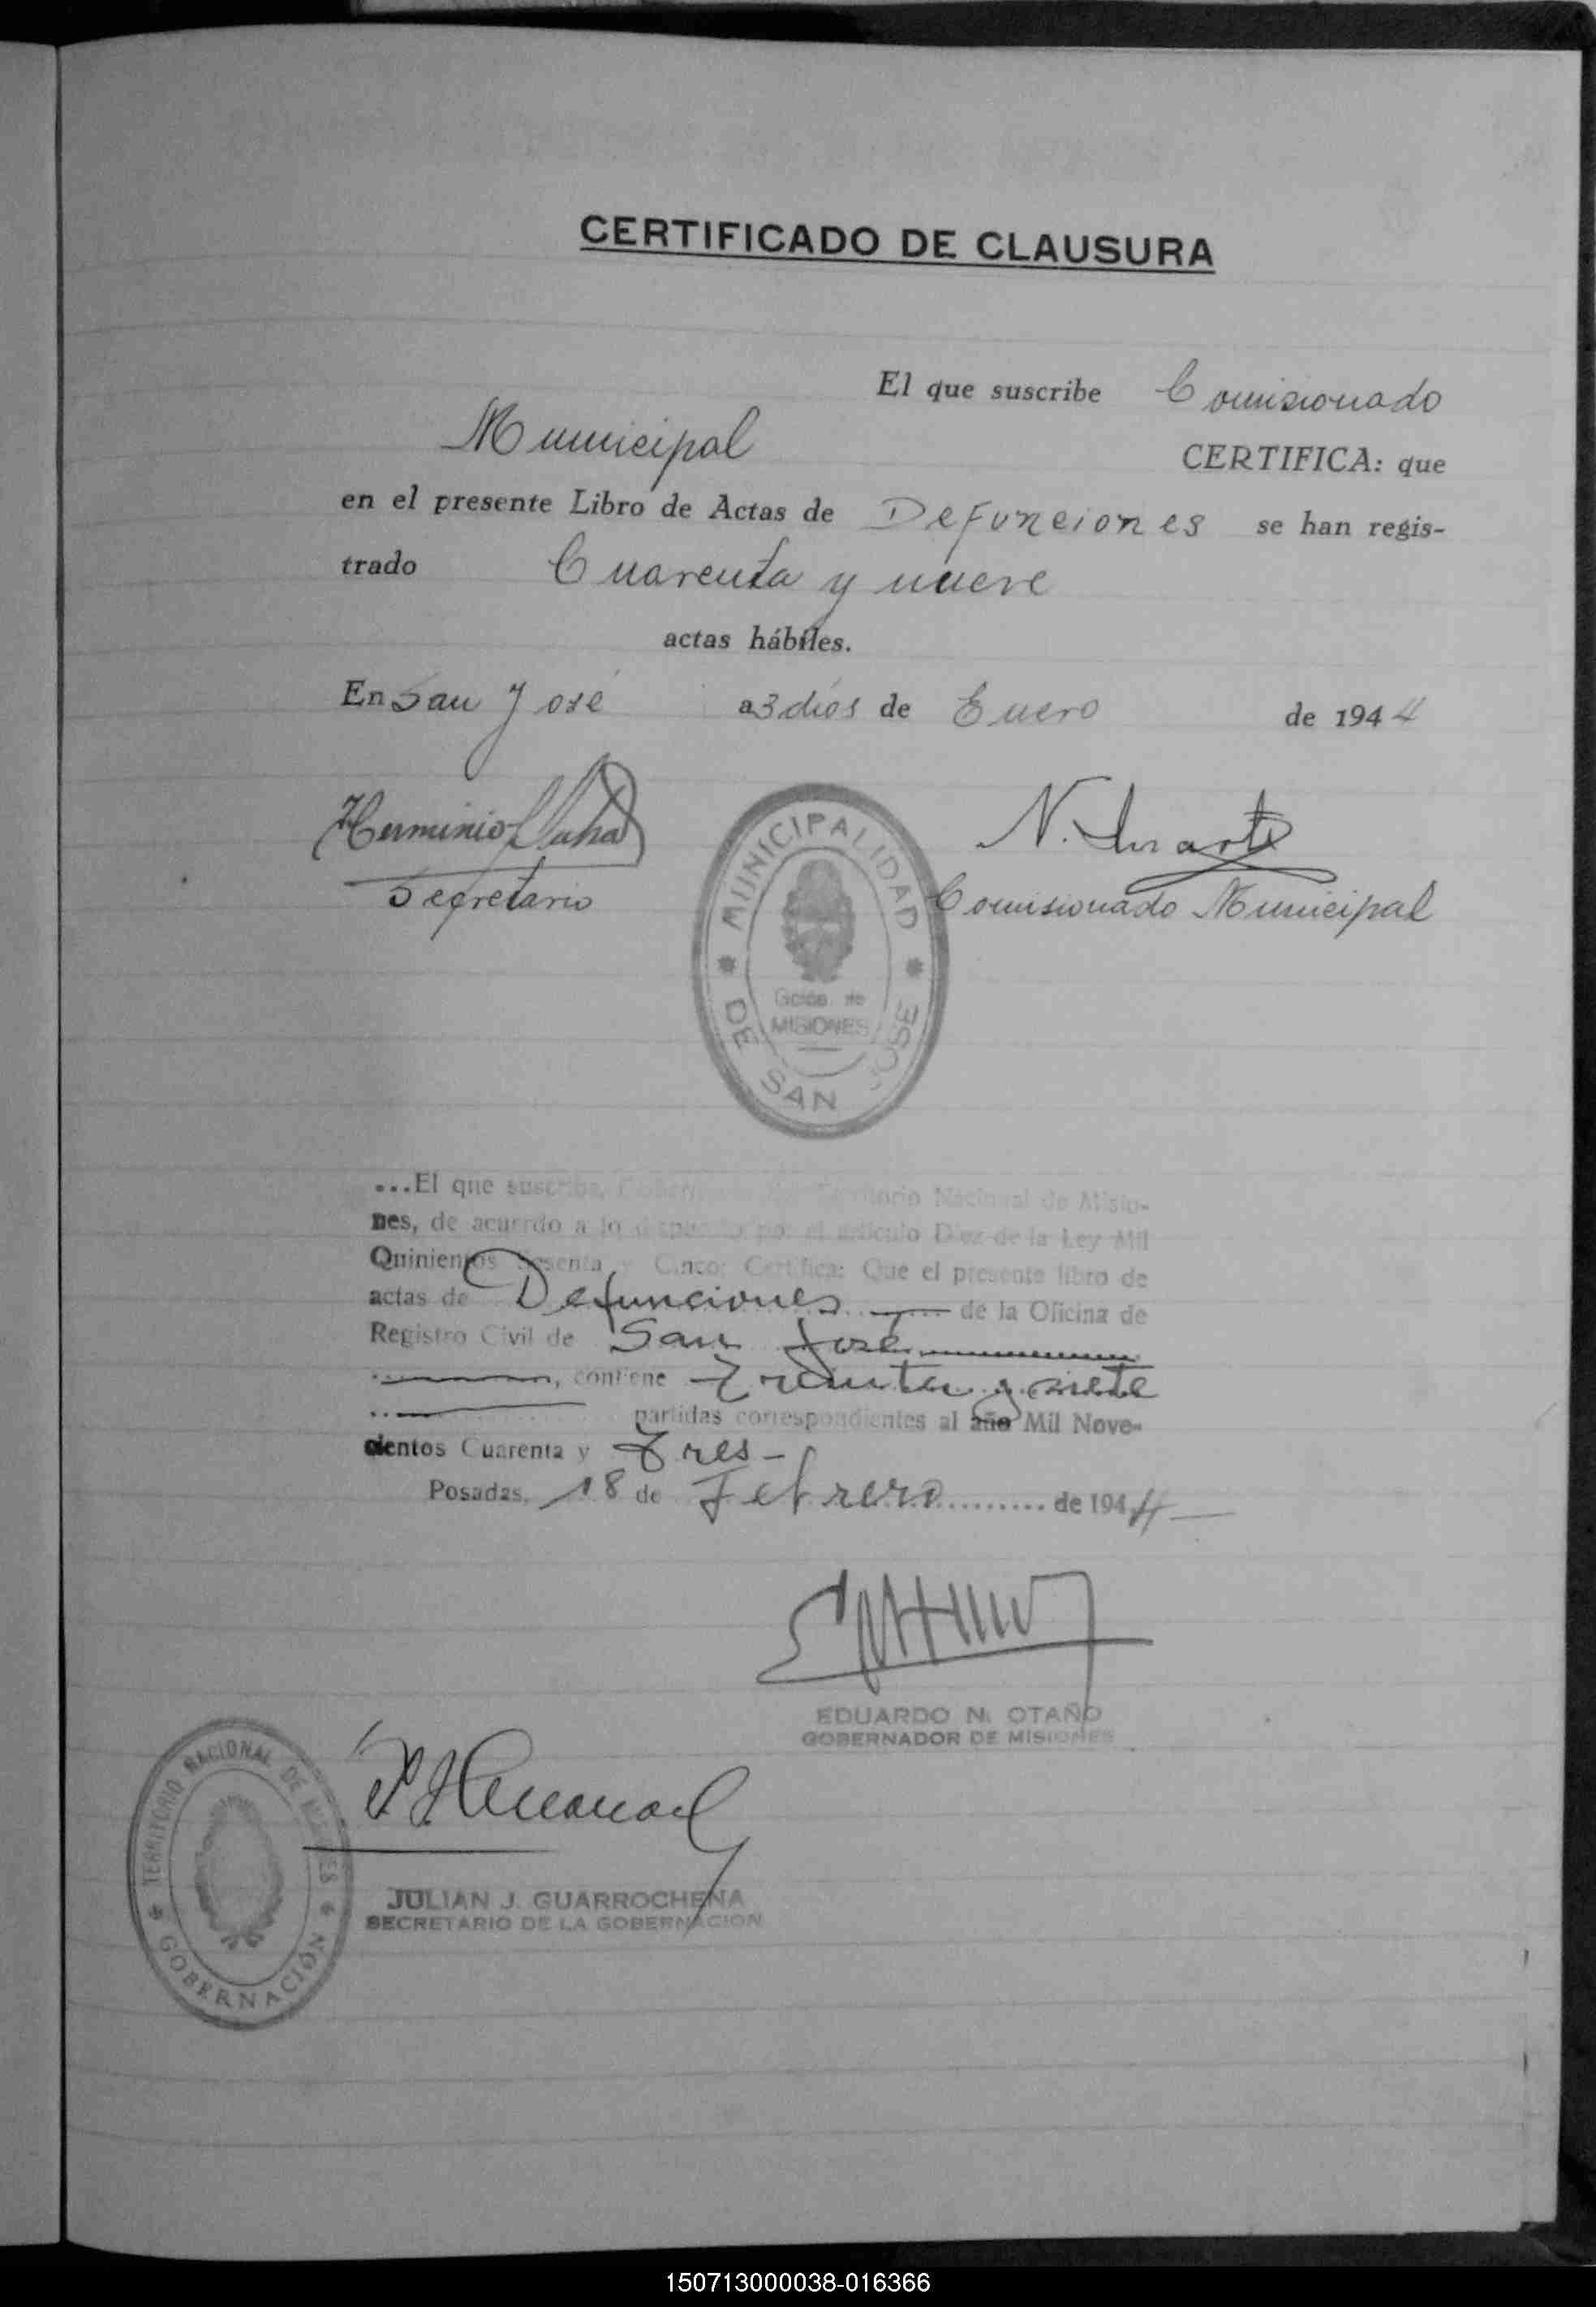 CERTIFICADO DE CLAUSURA
El que suscribe Comisionado
Municipal CERTIFICA: que
en el presente Libro de Actas de Defunciones se han regis-
trado Cuarenta y nueve
actas hábiles.
En San José a 3 dias de Enero de 1944
Herminio
N. Iriarte
Secretario
Comisionado Municipal
MUNICIPALIDAD DE SAN JOSE
Gción. de
MISIONES
...El que suscribe, Gobernador del Territorio Nacional de Misio-
nes, de acuerdo a lo dispuesto por el artículo Diez de la Ley Mil
Quinientos Sesenta y Cinco; Certifica: Que el presente libro de
actas de Defunciones de la Oficina de
Registro Civil de San José
, contiene Treinta y siete
partidas correspondientes al año Mil Nove-
cientos Cuarenta y Tres -
Posadas, 18 de Febrero de 1944
EDUARDO N. OTAÑO
GOBERNADOR DE MISIONES
TERRITORIO NACIONAL DE MISIONES
GOBERNACIÓN
JULIAN J. GUARROCHENA
SECRETARIO DE LA GOBERNACION
150713000038-016366